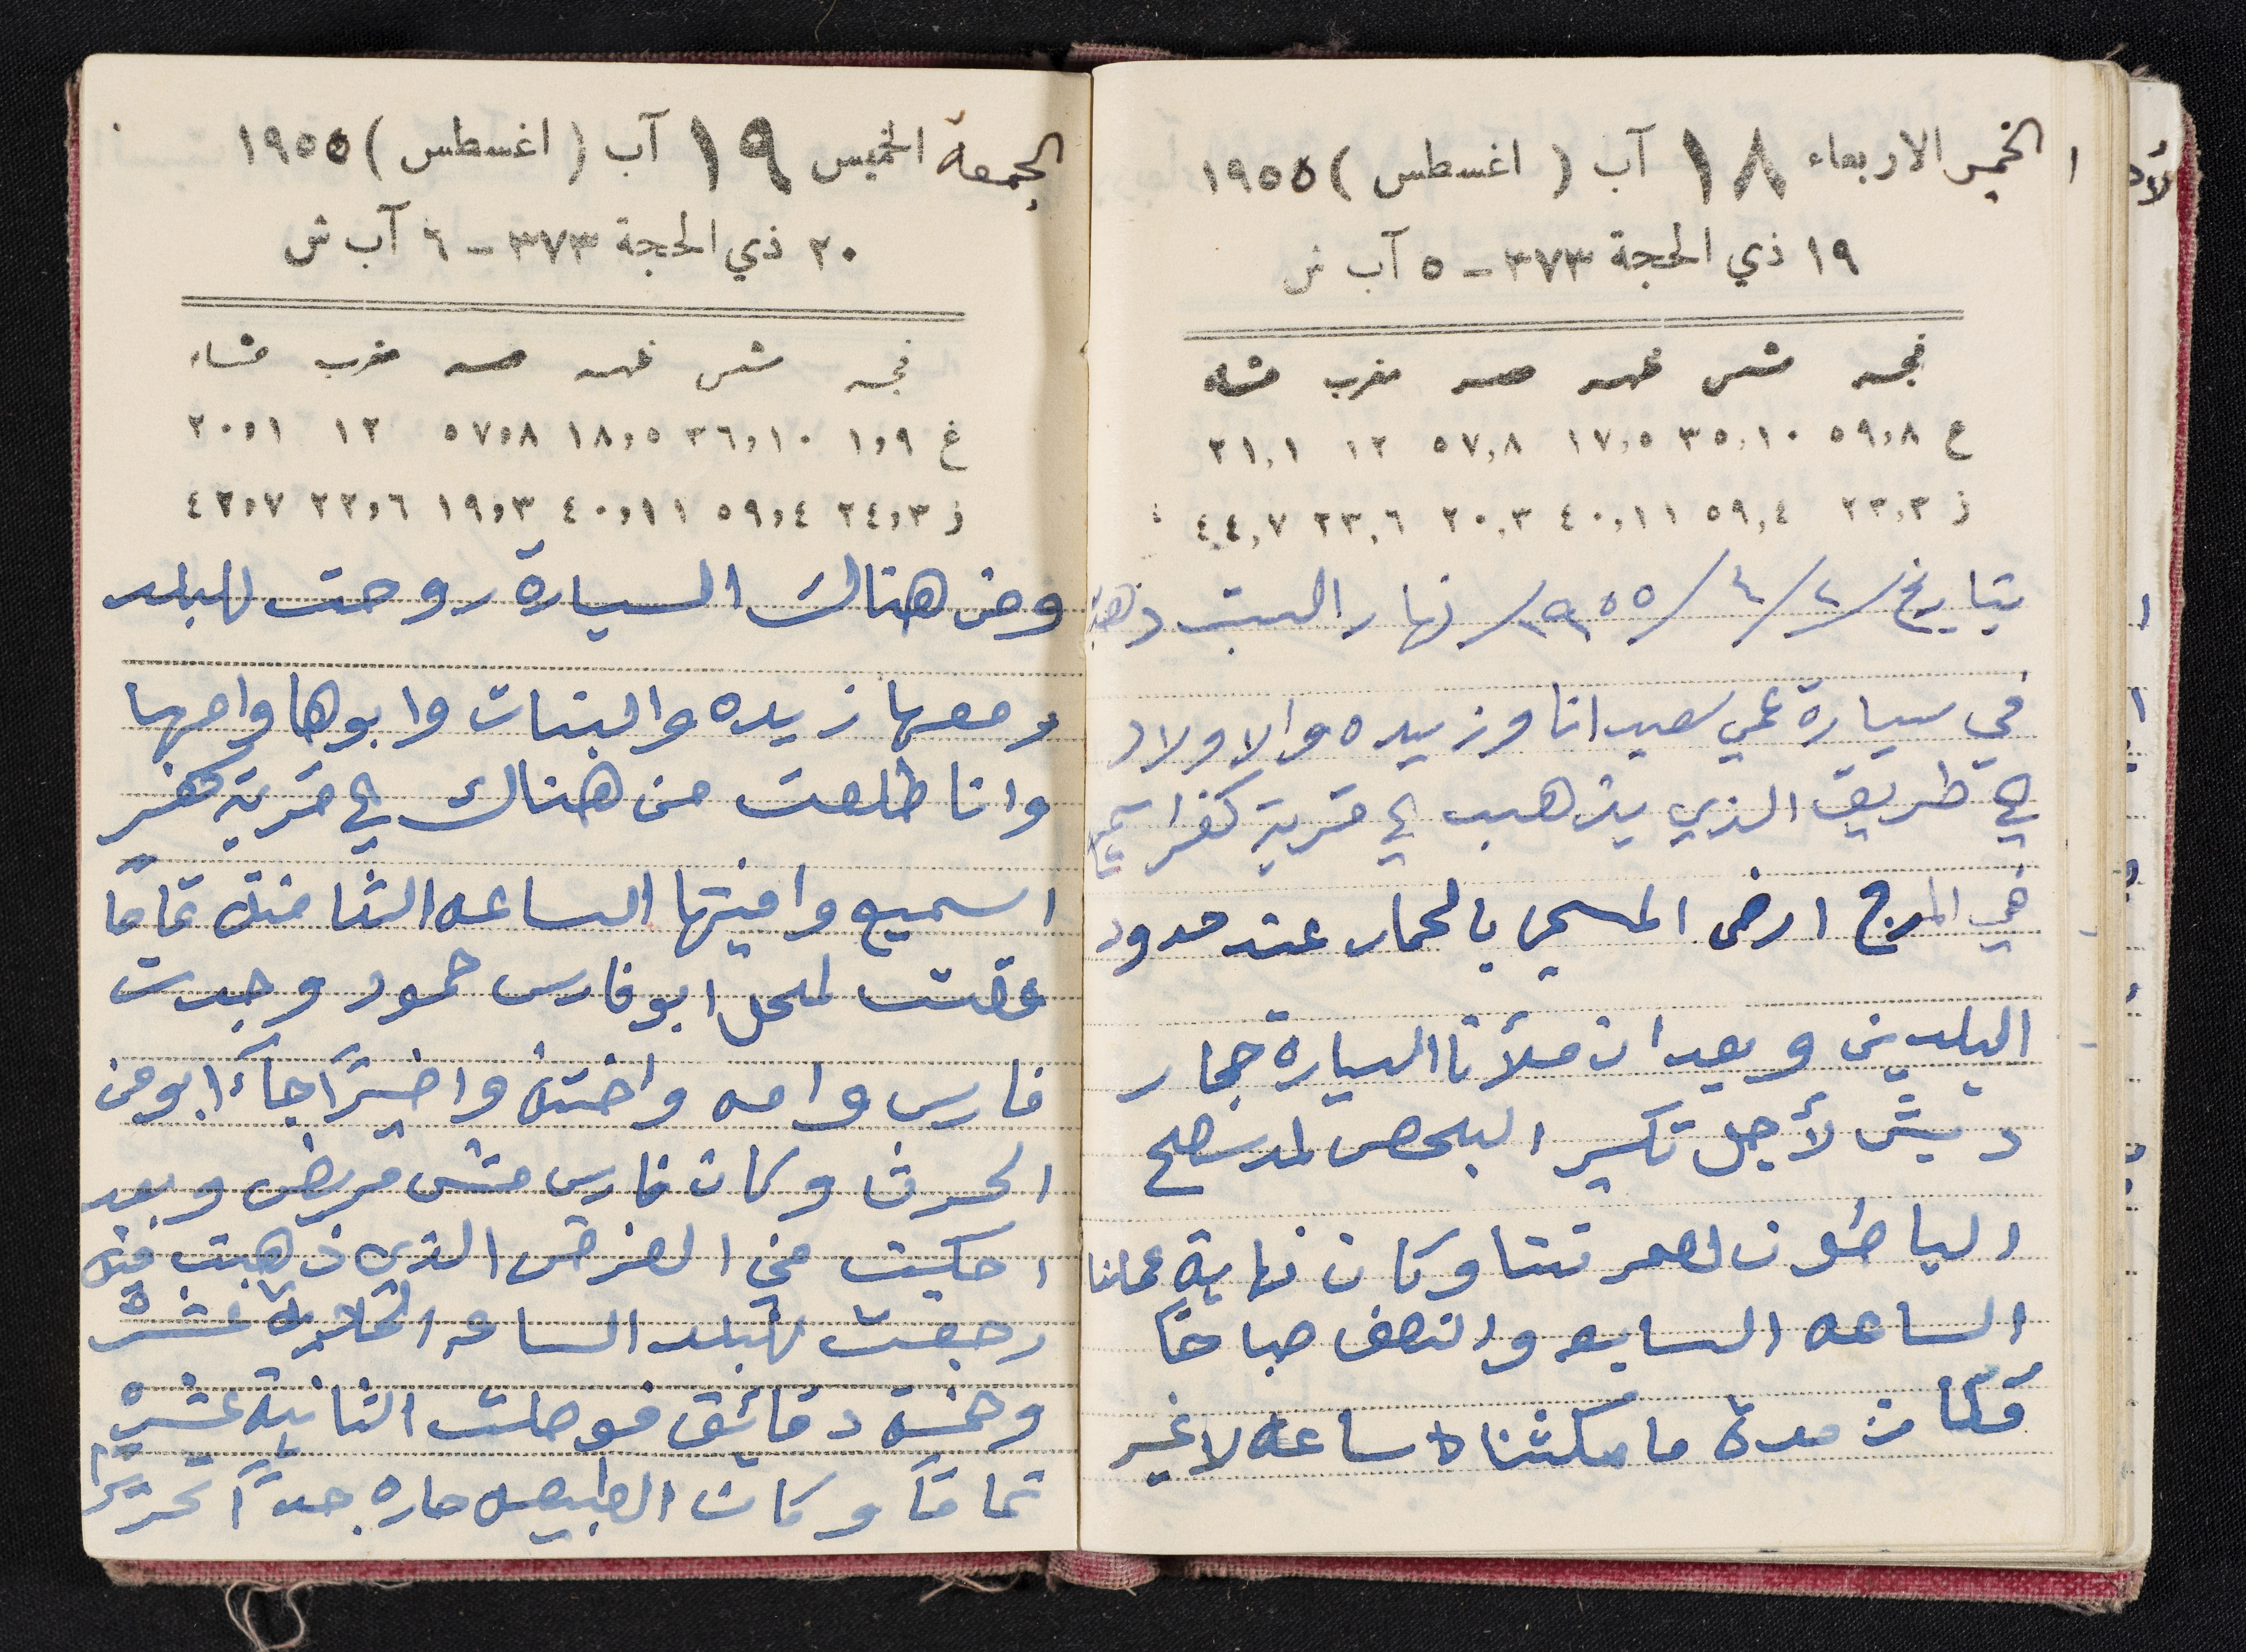 الخميس الاربعاء ١٨ آب ( اغسطس ) ١٩٥٥
١٩ ذي الحجة ٣٧٣ - ٥ آب ش
فجر شمس ظهر عصر مغرب عشاء
غ ٥٩,٨ ٣٥,١٠ ١٧,٥ ٥٧,٨ ١٢ ٢١,١
ز ٢٢,٣ ٥٩,٤ ٤٠,١١ ٢٠,٣ ٢٣,٦ ٤٤,٧
بتاريخ ٢/٤/١٩٥٥/ نهار السبت ذهبنا
في سيارة عمي سعيد انا وزبيده والاولاد
الى طريق الذي يذهب الى قرية كفر اسميع
في المرج ارض المسمى بالحمار عند حدود
البلدين وبعد ان ملأنا السيارة حجار
دبش لأجل تكسير البحص لمد سطح
الباطون لعمرتنا وكان نهاية عملنا
الساعه السابعه والنصف صباحًا
فكانت مدة ما مكثناه ساعه لا غير
الجمعه الخميس ١٩ آب ( اغسطس ) ١٩٥٥
٢٠ ذي الحجة ٣٧٣ - ٦ آب ش
فجر شمس ظهر عصر مغرب عشاء
غ ١,٩ ٣٦,١٠ ١٨,٥ ٥٧,٨ ١٢ ٢٠,١
ز ٢٤,٣ ٥٩,٤ ٤٠,١١ ١٩,٣ ٢٢,٦ ٤٢,٧
ومن هناك السيارة روحت للبلد
ومعها زبيده والبنات وابوها وامها
وانا طلعت من هناك الى قرية كفر
اسميع وافيتها الساعه الثامنة تمامًا
لمحل ابو فارس حمود وجدت
فارس وامه واخته واخيرًا جآء ابو من
الحرث وكان فارس مش مريض وبعد
احكيت في الغرض الذي ذهبت منه
رجعت للبلد الساعه الحادية عشرة
وخمسة دقائق فوصلت الثانية عشره
تمامًا وكان الطبيعه حاره جدًا تحريرًا